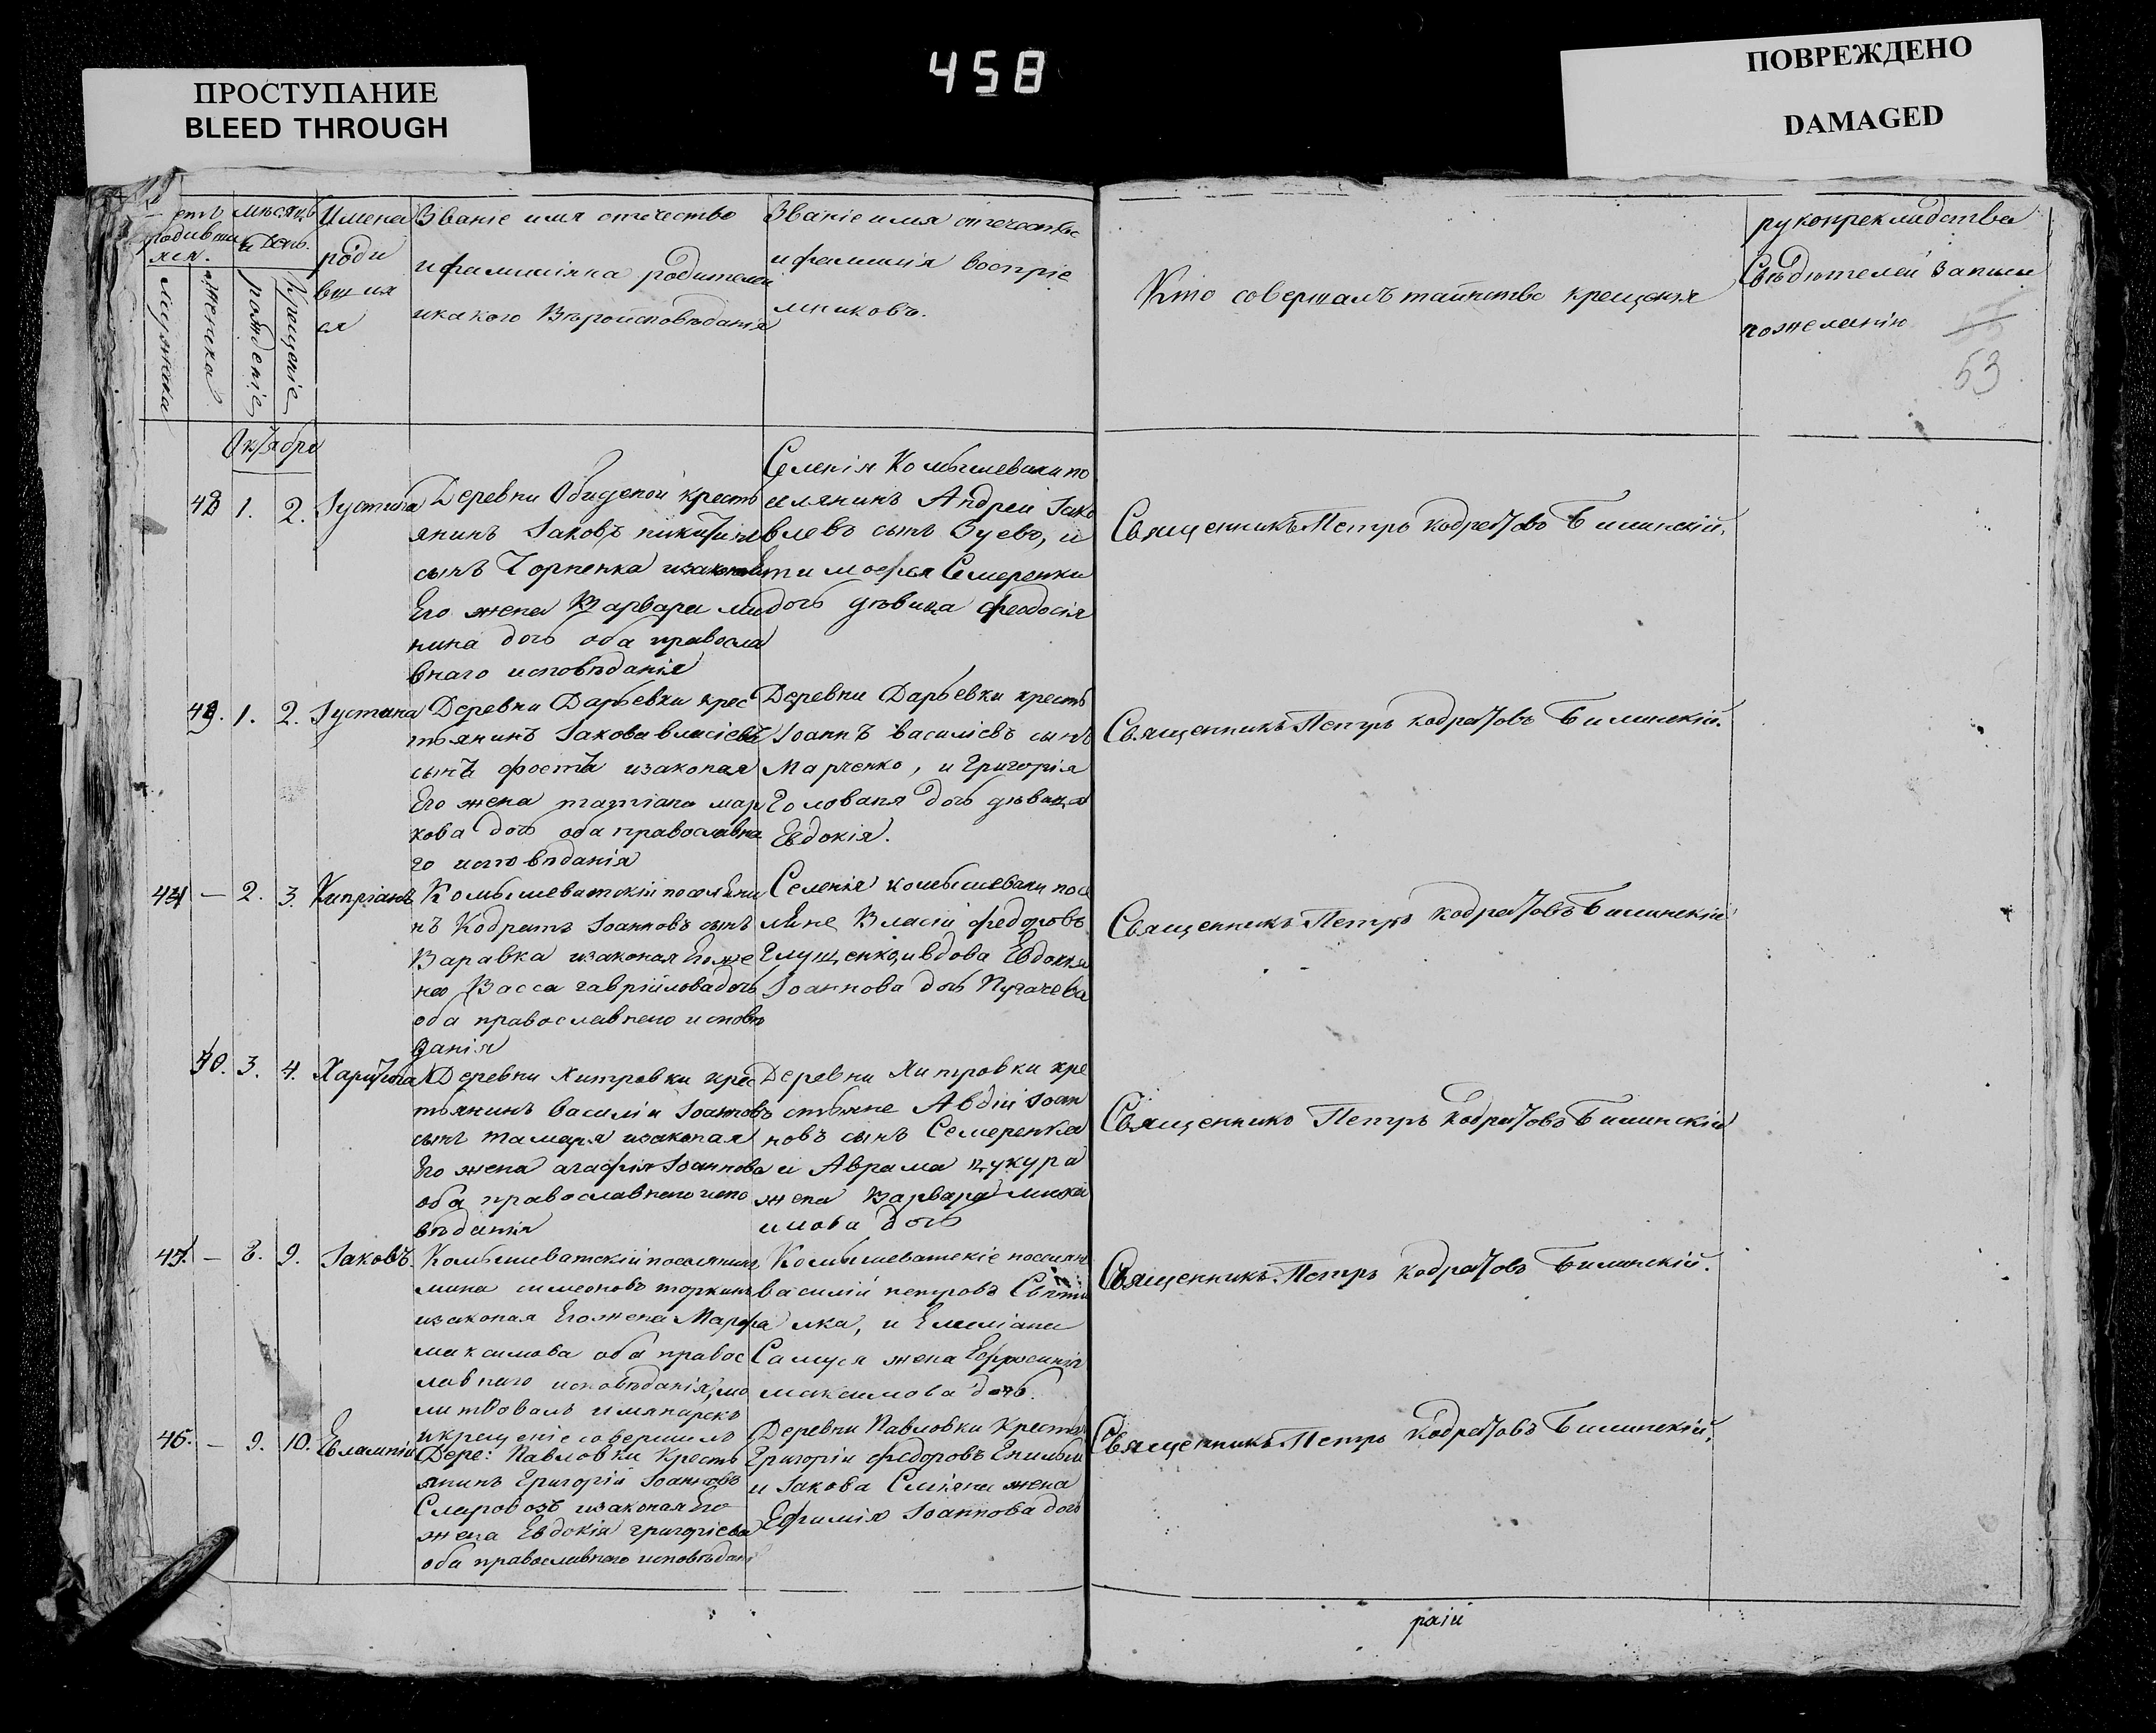 458
ПРОСТУПАНИЕ
BLEED THROUGH
ПОВРЕЖДЕНО
DAMAGED
мѣсяцъ
и день.
мужска
женска
рожденіе
крещеніе
Имена
роди
вшия
ся
Званіе имя отчество
и фамилія ка родителей
и какого Вѣроисповѣданія
Званіе имя отечество
и фамилія воспріе
мниковъ.
Кто совершалъ таинство крещенія
рукоприкладства
Свѣдѣтелей записи
пожеланію
53
Октября
48 1. 2. Іустина
Деревни Обиденой кресть
янинъ Іаковъ никитинъ
сынъ Чорненка изаконая
Его жена Варвара ми
нина дочь оба правосла
внаго исповѣданія
Селенія Комышевахи по
селянинъ Андрей Іако
влевъ сынъ Зуевъ, и
Семеренки
дочь дѣвица феодосія
Священникъ Петръ кодратовъ Билинскій.
49. 1. 2. Іустина
Деревни Дарьевки крес
тьянинъ Іакова власіевъ
сынъ изаконая
Его жена татіана мар
кова дочь оба православна
го исповѣданія
Деревни Дарьевки кресть
Іоаннъ василіевъ сынъ
Марченко, и Григорія
Голованя дочь дѣвица
Евдокія.
Священникъ Петръ кодратовъ Билинскій.
— 2. 3. Кипріанъ
Комышеватскій поселяни
нъ Кодратъ Іоанновъ сынъ
Варавка изаконая Его же
на Васса гавріилова дочь
оба православнаго исповѣ
данія
Селенія комышевахи посе
ляне Власій федоровъ
Глущенко, и вдова Евдокія
Іоаннова дочь Пугачева
Священникъ Петръ кодратовъ Билинскій
3. 4. Харитина
Деревни Хитровки крес
тьянинъ василій Іоанновъ
сынъ изаконая
Его жена агафія Іоаннова
оба православнаго испо
вѣданія
Деревни Хитровки кре
стьяне Авдій Іоан
новъ сынъ Семеренка
и Аврама цукура
жена Варвара михаи
лова дочь
Священникъ Петръ кодратовъ Билинскій
45. — 8. 9. Іаковъ.
Комышеватскій поселянинъ
мина симеоновъ
изаконая Его жена Марфа
максимова оба правос
лавнаго исповѣданія, мо
литвовалъ имянарекъ
и крещеніе совершилъ
Комышеватскіе поселян
василій петровъ
лка, и Емиліана
Самуся жена Ефросинія
максимова дочь.
Священникъ Петръ кодратовъ Билинскій.
46. — 9. 10. Евлампій
Дере: Павловки Кресть
янинъ Григорій Іоанновъ
изаконая Его
жена Евдокія григоріева
оба православнаго исповѣдані
Деревни Павловки Крестья
Григорій федоровъ
и Іакова жена
Ефимія Іоаннова дочь
Священникъ Петръ Кодратовъ Билинскій,
раіи